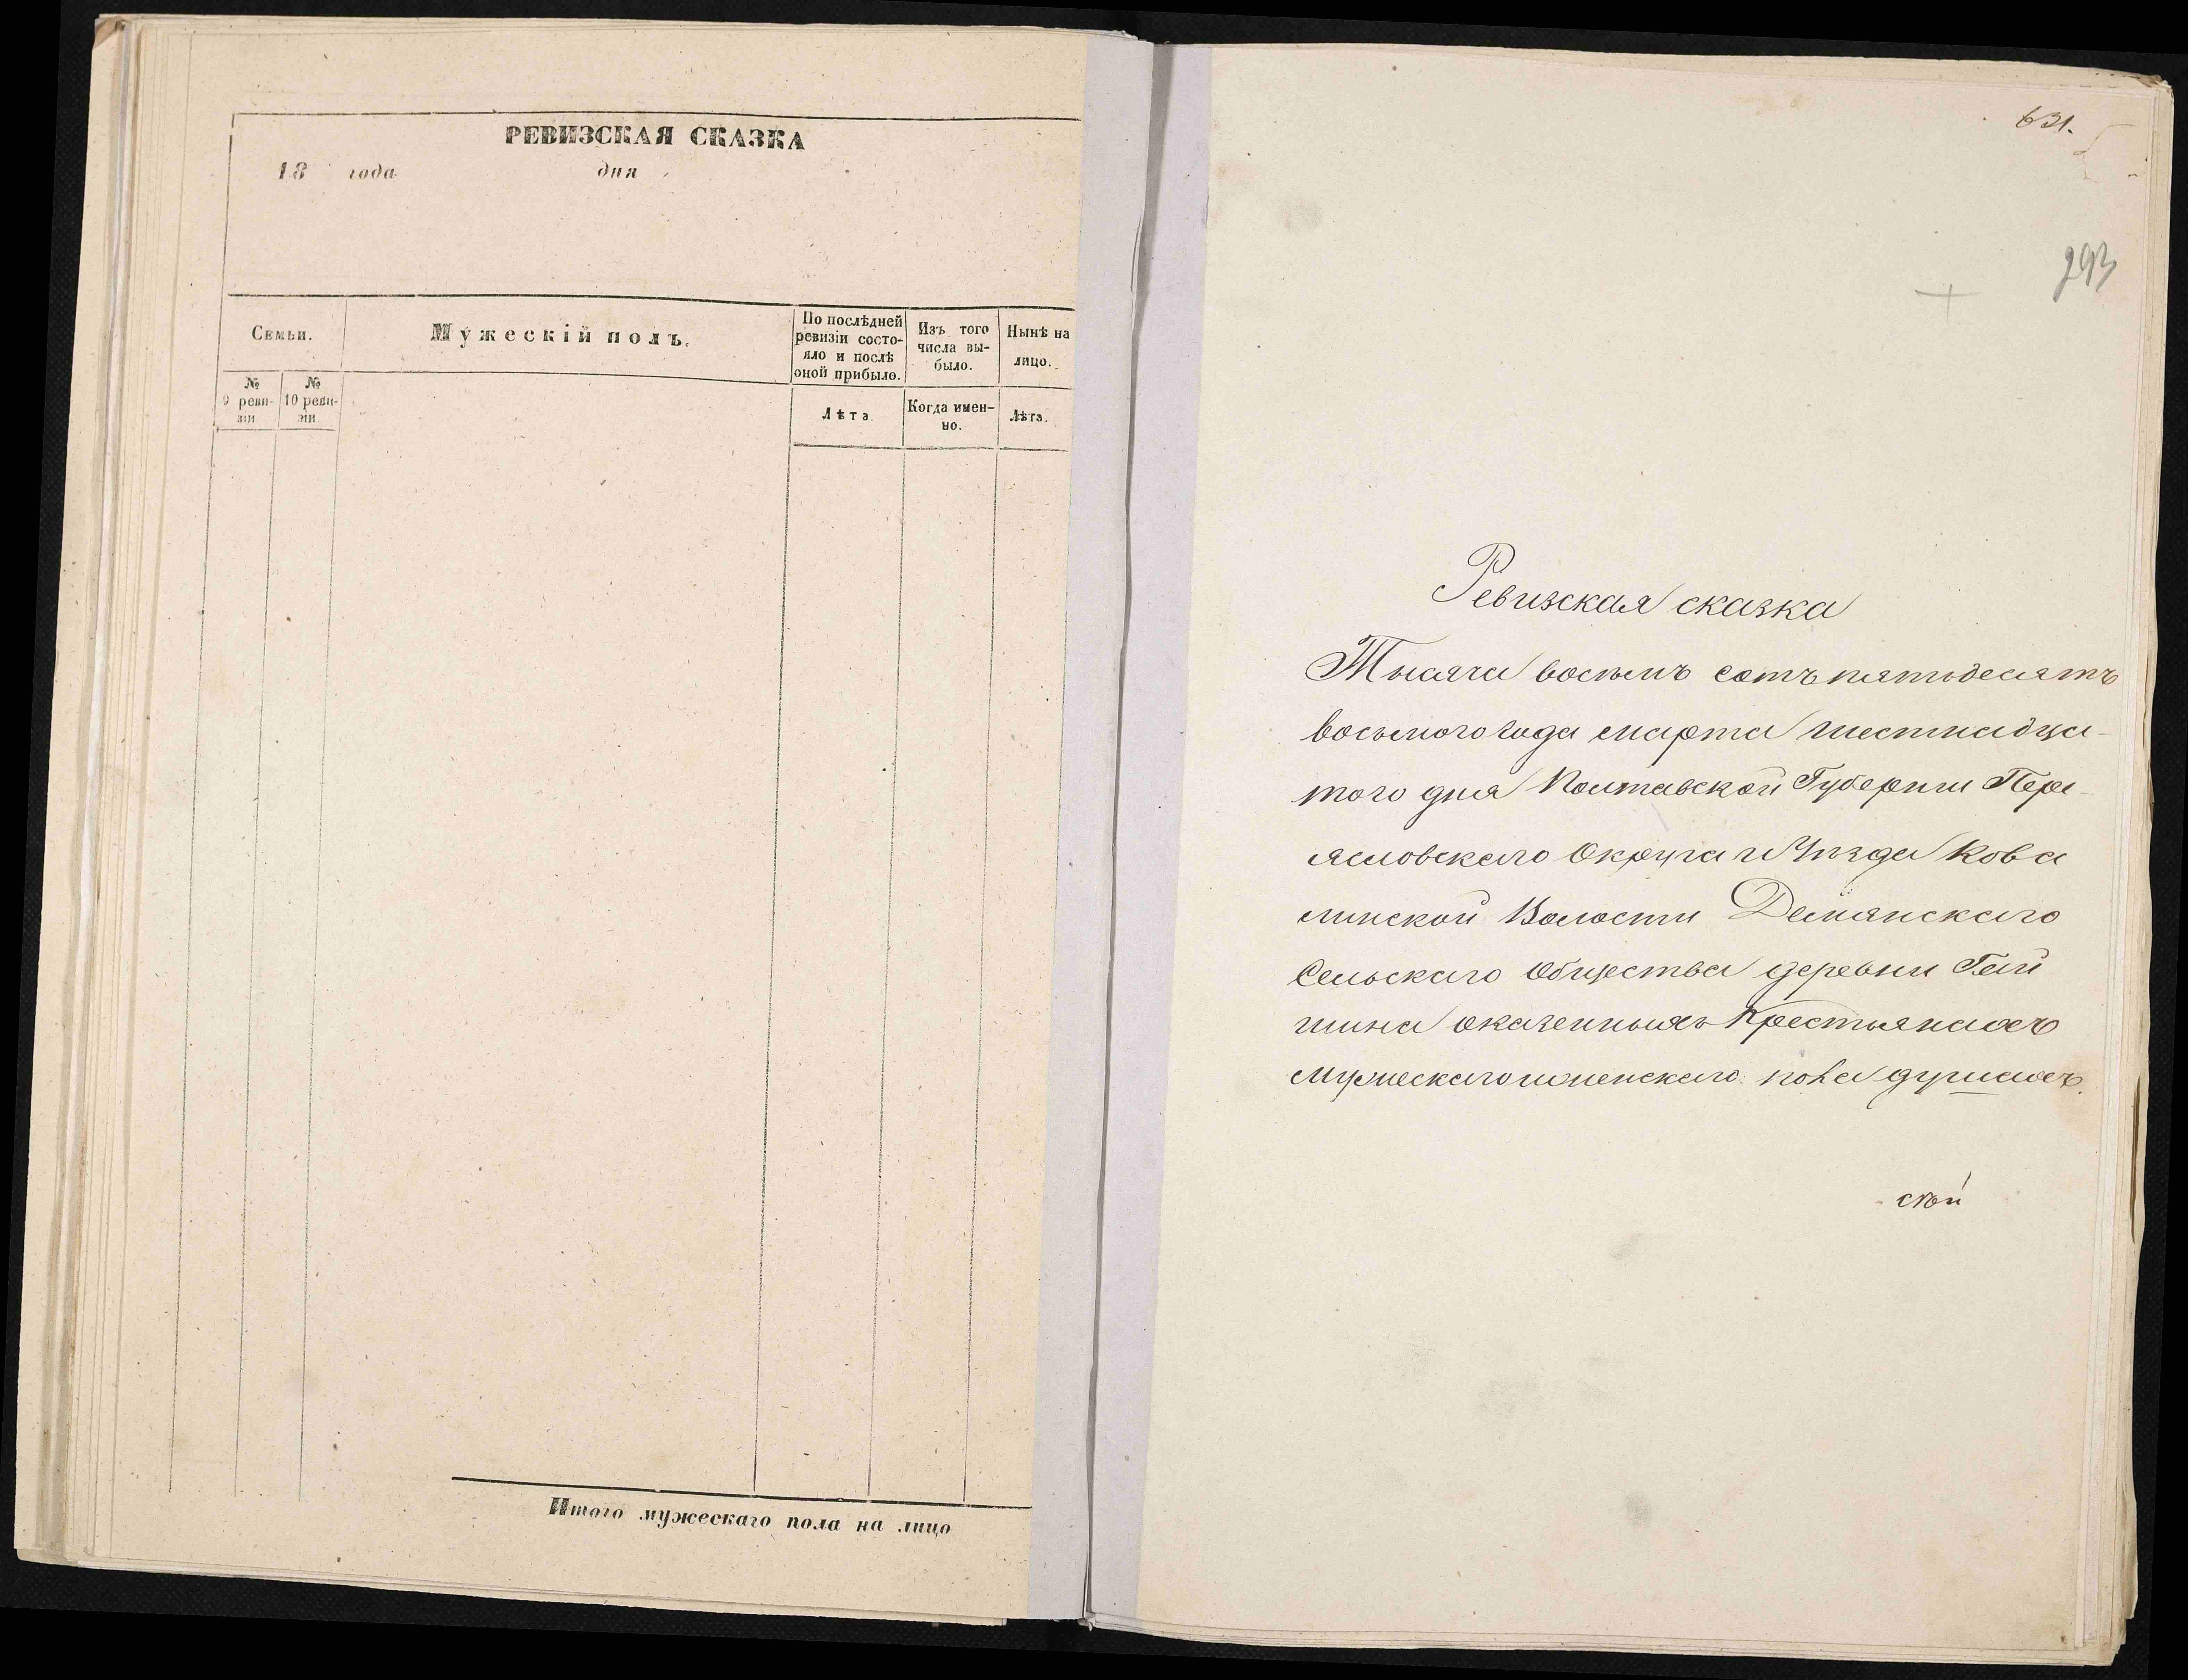 РЕВИЗСКАЯ СКАЗКА
18 года дня
Семьи.
Мужескій полъ.
По послѣдней
ревизіи состо-
яло и послѣ
оной прибыло.
Изъ того
числа вы-
было.
Нынѣ на
лицо.
№
9 реви-
зіи
№
10 реви-
зіи.
Лѣта.
Когда имен-
но.
Лѣта.
Итого мужескаго пола на лицо
631.
293
Ревизская сказка
Тысяча восемъ сотъ пятьдесятъ
восьмого года марта шестнадца-
того дня Полтавской Губерніи Пере-
яславскаго Округа и Уѣзда Кова
линской Волости Демянскаго
Сельскаго Общества деревни Гай
шина оказенныхъ Крестьянахъ
мужескаго и женскаго пола душахъ.